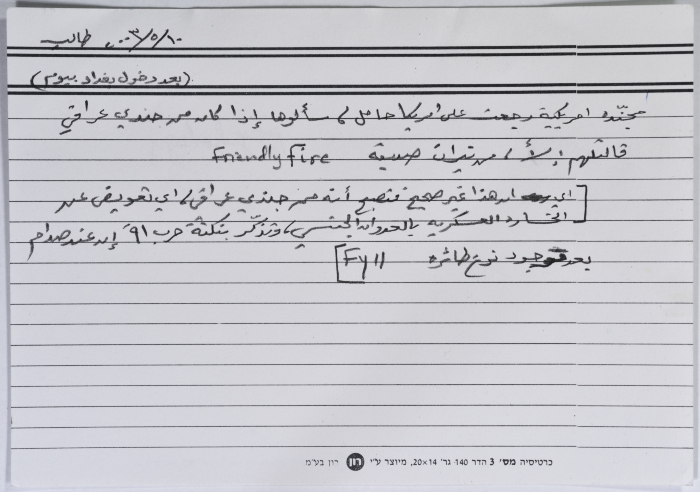 ٢٠٠٣/٥/١٠ طالب
(بعد دخول بغداد بيوم)
مجنّده امريكية رجعت على امريكا حامل، سألوها إذا كان من جندي عراقي
قالتلهم: لأ، من نيران صديقة Friendly fire
[اي ان هذا غير صحيح فتصبح أنه من جندي عراقي، اي تعويض عن
الخساره العسكريه بالعدوان الجنسي، وتذكّر بنكتة حرب ٩١ إن عند صدام
بعد وجود نوع طائره [Fy 11
כרטיסיה מס' 3 הדר 140 גר' 20×14, מיוצר ע"י רון רון בע"מ